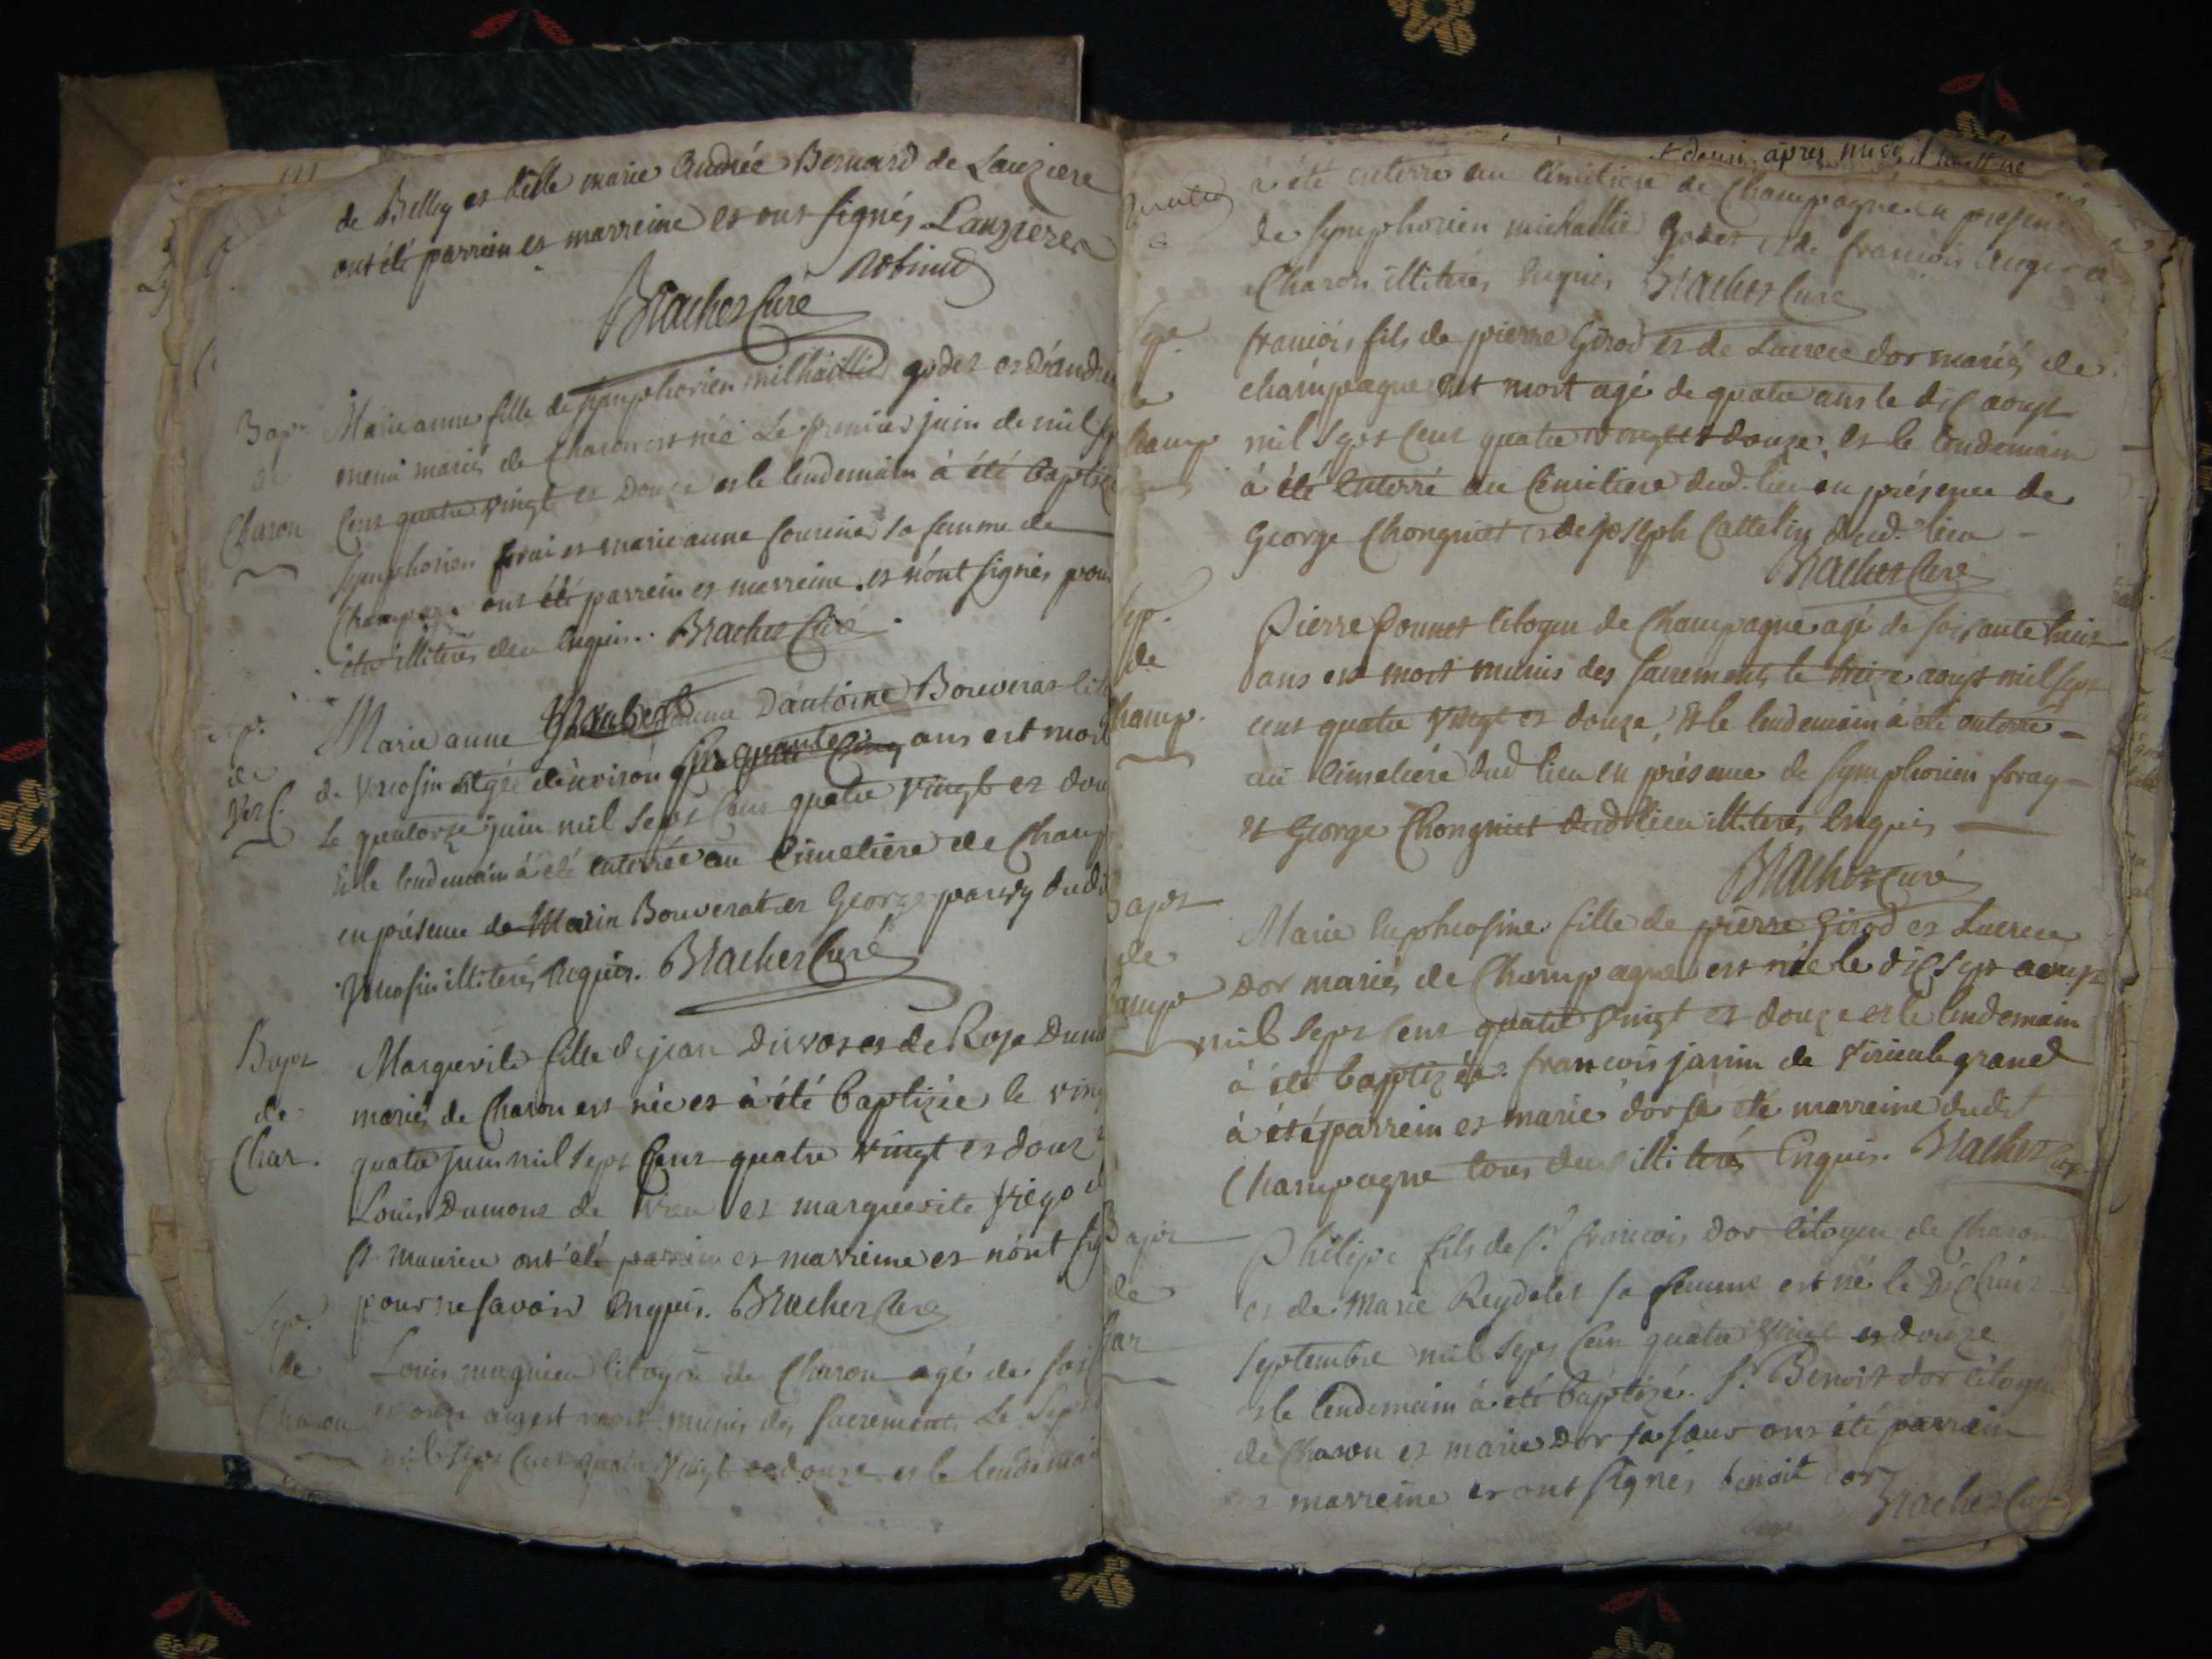 de Belley et delle marie Andrée Bernard de Lauziere
ont été parrein et marreine et ont signés Lauzieres
Brachet Curé
Bap.
de
Charon
Marie anne fille de Symphorien milhaillié godet et d'andré
mariés de Charon est née Le premier juin de mil
Cent quatre vingt et Douze et le lendemain à été baptizé
Symphorien forai et marie anne sa femme de
ont été parrein et marreine et n'ont signés pour
être illiterés de ce Enquis. Brachet Curé
de
Marie anne femme D'antoine Bouverat
de Vercosin agée d'environ cinq ans est mor
Le quatorze juin mil Sept Cent quatre vingt et dou
Et le lendemain à été enterrée au Cimetiere de Champ
en présence de Marin Bouverat et George dud
Vercosin illiterés Enquis. Brachet Curé
Bapt
de
Char.
Marguerite fille de jean et de Rose Dum
mariés de Charon est née et à été baptizée le ving
quatre juin mil Sept Cent quatre vingt et douz
Louis Dumont de Vieu et marguerite
St maurice ont été parrein et marreine et n'ont sig
pour ne savoir Enquis. Brachet Curé
Sep.
de
Charon
Louis magnien Citoyen de Charon agé de soi
et onze ans est mort munis des sacrements Le Sept
mil Sept Cent quatre Vingt et douze et le lendemain
à été enterré au Cimitiere de Champagne en présen
de Symphorien michallié Godet et de francois
Charon illiterés Enquis Brachet Curé
Sep.
de
Champ
francois fils de pierre Girod et de Lucrece dor mariés de
champagne est mort agé de quatre ans le dix aoust
mil Sept Cent quatre vingt et douze, et le lendemain
à été Enterré au Cimitiere dud. lieu en présence de
George Chongniet et de joseph Cattelin dud. lieu
Brachet Curé
Sep.
de
Champ.
Pierre Citoyen de Champagne agé de soisante huit
ans est mort munis des Sacrements le treize aoust mil sept
cent quatre Vingt et douze, Et le lendemain à été enterré
au Cimetiere dud lieu en présence de Symphorien foray
et George Chongniet dud lieu illiterés Enquis
Brachet Curé
Bapt
de
Champ
Marie Euphrosine fille de pierre Girod et Lucrece
Dor mariés de Champagne est née le dix sept aoust
mil Sept Cent quatre Vingt et douze et le lendemain
à été baptizée. francois janin de Virieu le grand
à été parrein et marie dor sa été marreine dudit
Champagne tous deux illiterés Enquis. Brachet Curé
Bapt
de
Char
Philipe fils de Sr. francois dor Citoyen de Charon
et de Marie Reydelet sa femme est né le Dix huit
septembre mil Sept Cent quatre Vingt et douze
et le lendemain à été baptizé. Sr. Benoit dor Citoyen
de Charon et marie Dor sa sœur ont été parrein
et marreine et ont signés benoit dor
Brachet Curé